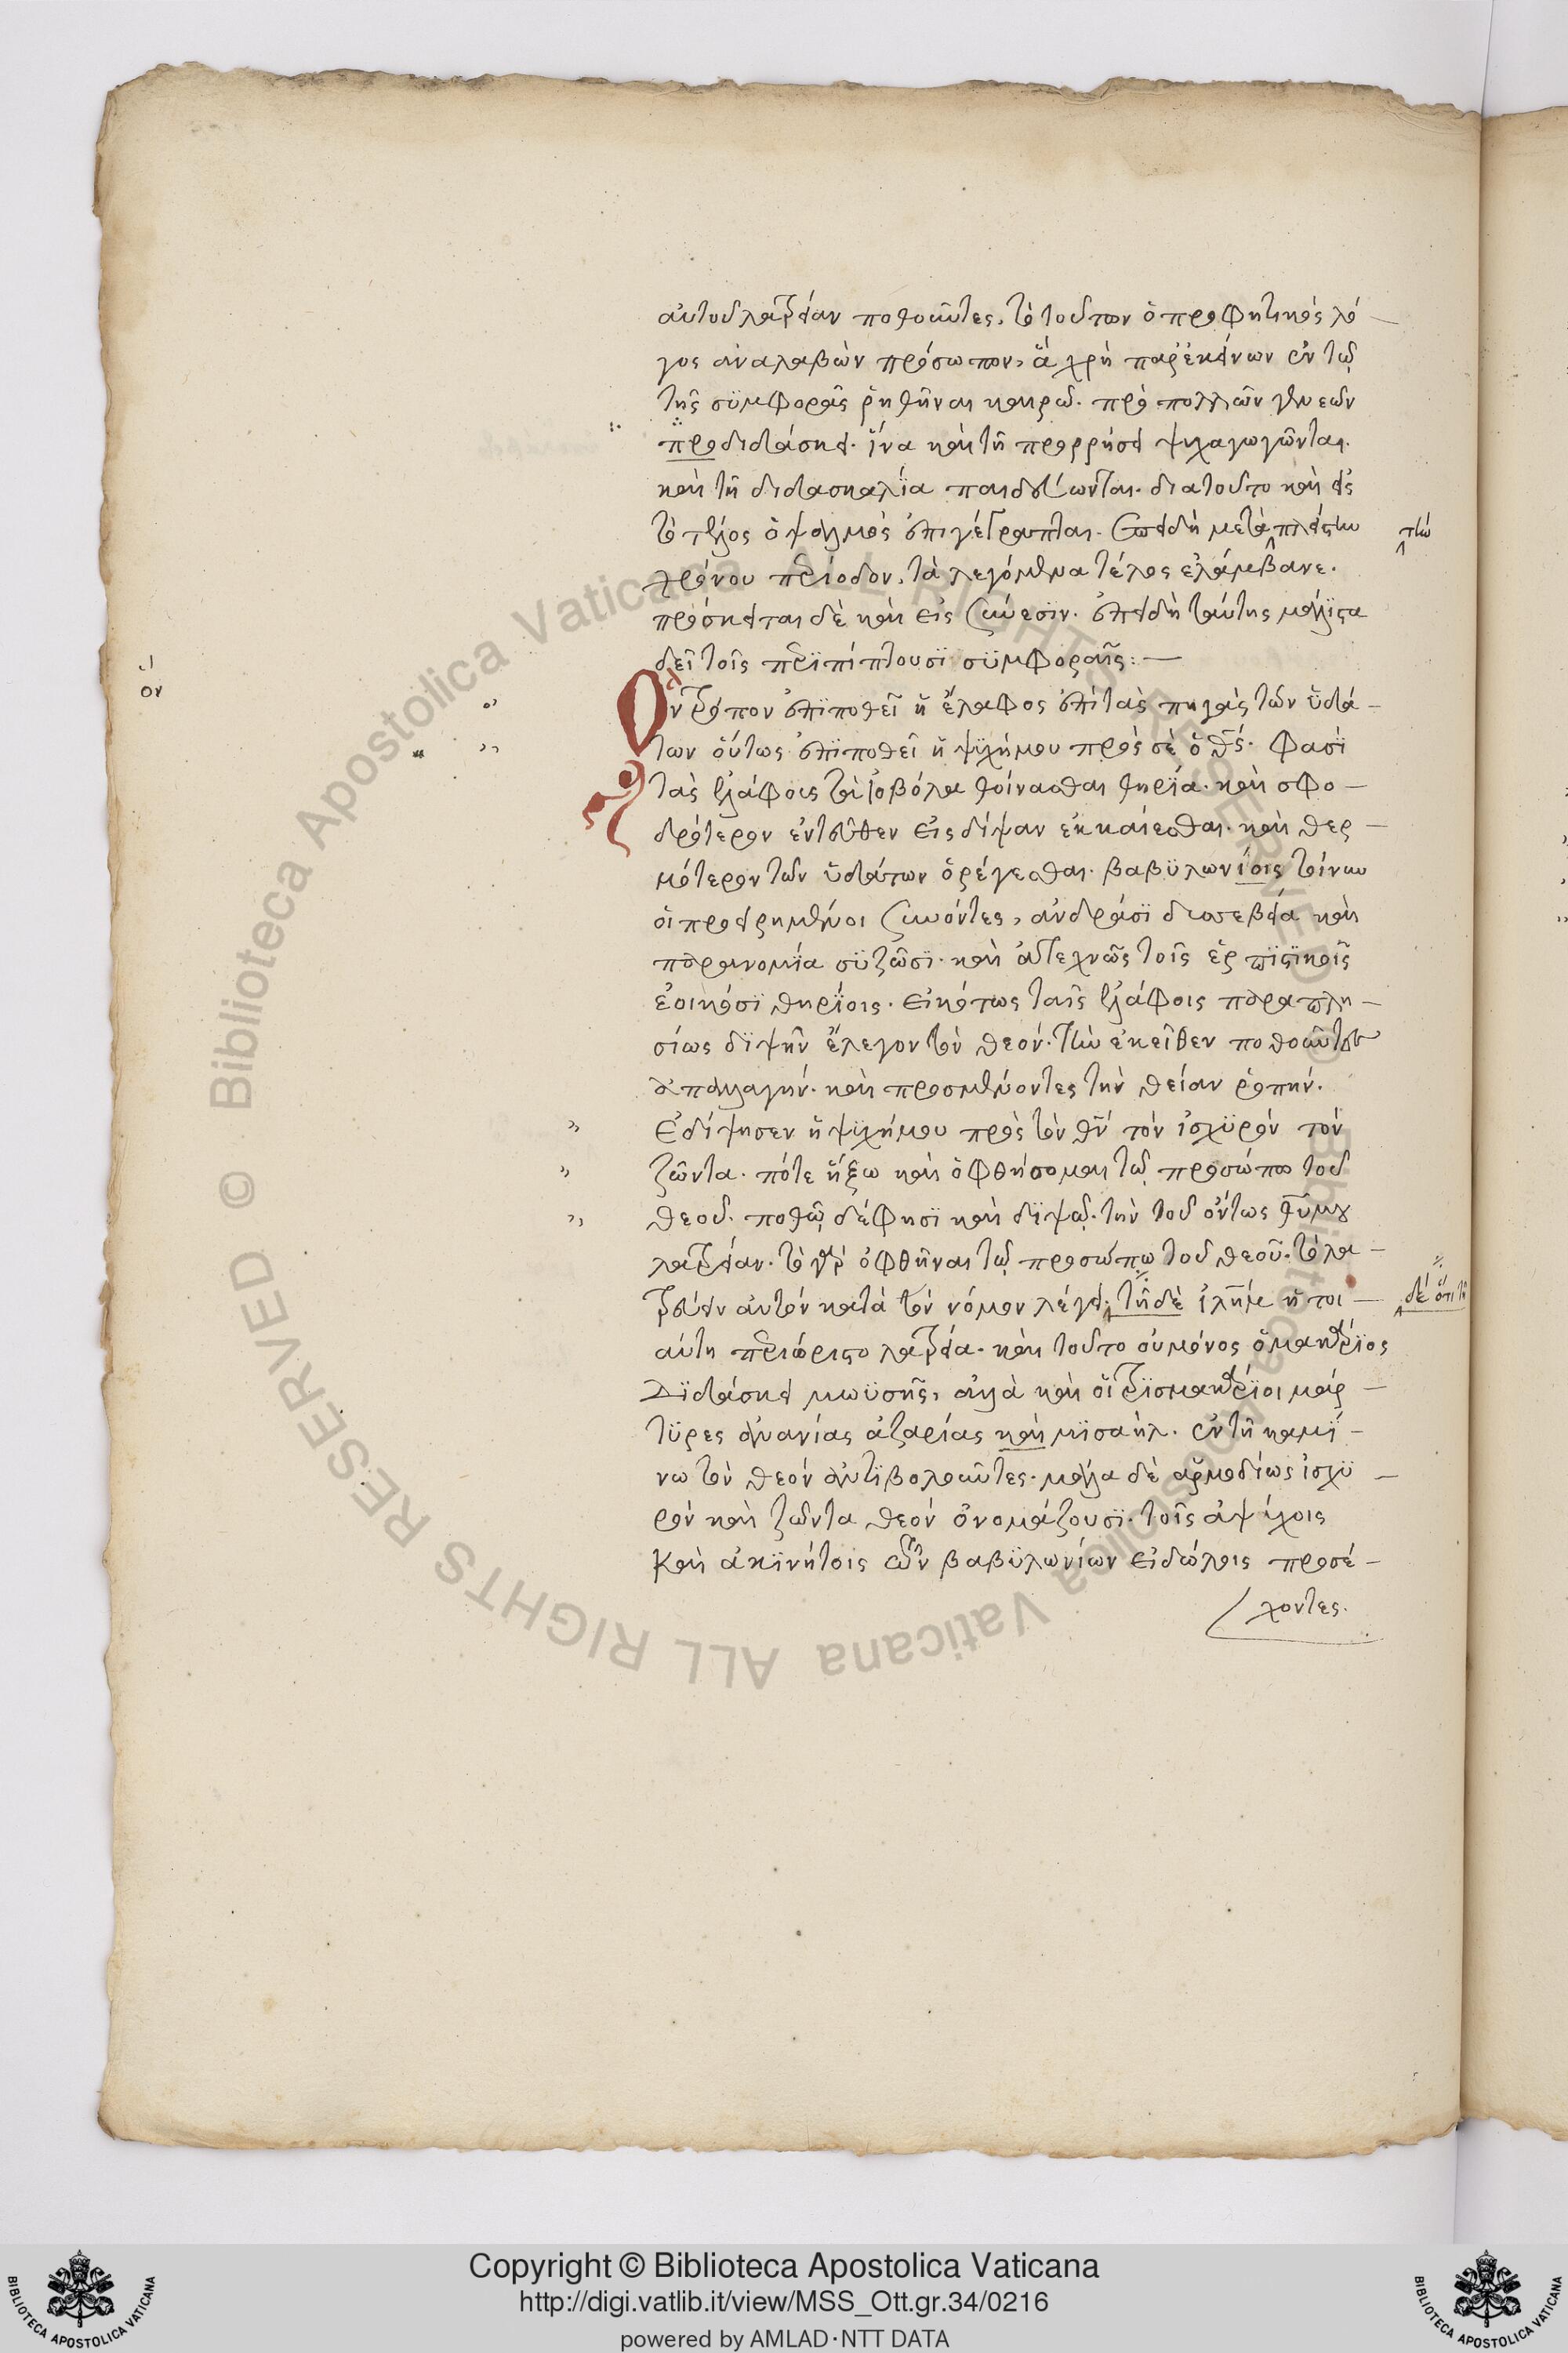 αὐτοῦ λατρείαν ποθοῦντες, τὸ τούτων ὁ προφητικὸς λό
γος ἀναλαβὼν πρόσωπον, ἃ χρὴ παρ' ἐκείνων ἐν τῷ
τῆς συμφορᾶς ῥηθῆναι καιρῷ. πρὸ πολλῶν γενεῶν
προδιδάσκει. ἵνα καὶ τῇ προρρήσει ψυχαγωγῶνται.
καὶ τῇ διδασκαλίᾳ παιδεύωνται. διατοῦτο καὶ εἰς
τὸ τέλος ὁ ψαλμὸς ἐπιγέγραπται. ἐπειδὴ μετὰ πλείστην
χρόνου περίοδον, τὰ λεγόμενα τέλος ἐλάμβανε.
πρόσκειται δὲ καὶ εἰς σύνεσϊν. ἐπειδὴ ταύτης μάλϊστα
δεῖ τοῖς περϊπίπτουσϊ συμφοραῖς:—
Ὃν τρόπον ἐπϊποθεῖ ἡ ἔλαφος ἐπὶ τὰς πηγὰς τῶν ὑδά
των οὕτως ἐπϊποθεῖ ἡ ψϋχή μου πρὸς σὲ ὁ θς. φασὶ
τὰς ἐλάφοις τὰ ἰοβόλα θοίνασθαι θηρΐα. καὶ σφο
δρότερον ἐντεῦθεν εἰς δίψαν ἐκκαίεσθαι. καὶ θερ
μότερον τῶν ὑδάτων ὀρέγεσθαι. βαβϋλωνίοις τοίνυν
οἱ προειρημένοι συνόντες, ἀνδράσϊ δυσσεβείᾳ καὶ
παρανομίᾳ συζῶσϊ. καὶ ἀτεχνῶς τοῖς ἑρπϊστϊκοῖς
ἐοικόσϊ θηρίοις. εἰκότως ταῖς ἐλάφοις παραπλη
σίως δϊψῆν ἔλεγον τὸν θεόν. τὴν ἐκεῖθεν ποθοῦντες
ἀπαλλαγήν. καὶ προσμένοντες τὴν θείαν ῥοπήν.
Ἐδίψησεν ἡ ψϋχή μου πρὸς τὸν θν τὸν ἰσχϋρόν τὸν
ζῶντα. πότε ἥξω καὶ ὀφθήσομαι τῷ προσώπῳ τοῦ
θεοῦ. ποθῶ δέ φησϊ καὶ δϊψῶ. τὴν τοῦ ὄντως θῦ μου
λατρείαν. τὸ γὰρ ὀφθῆναι τῷ προσώπῳ τοῦ θεοῦ. τὸ λα
τρεύειν αὐτὸν κατὰ τὸν νόμον λέγει. τῇ δὲ ἰλῆμ ἡ τοι
αύτη περιώριστο λατρεία. καὶ τοῦτο οὐ μόνος ὁ μακάρϊος
διδάσκει μωϋσῆς, ἀλλὰ καὶ οἱ τρϊσμακάρϊοι μάρ
τϋρες ἀνανίας ἀζαρίας καὶ μϊσαήλ. ἐν τῇ καμΐ
νῳ τὸν θεὸν ἀντϊβολοῦντες. μάλα δὲ ἁρμοδίως ἰσχϋ
ρὸν καὶ ζῶντα θεὸν ὀνομάζουσϊ. τοῖς ἀψύχοις
καὶ ἀκϊνήτοις τῶν βαβϋλωνίων εἰδώλοις προσέ
χοντες.
τὴν
δὲ ὅτι τῇ
Copyright © Biblioteca Apostolica Vaticana
http://digi.vatlib.it/view/MSS_Ott.gr.34/0216
powered by AMLAD·NTT DATA
BIBLIOTECA APOSTOLICA VATICANA
BIBLIOTECA APOSTOLICA VATICANA
© Biblioteca Apostolica Vaticana ALL RIGHTS RESERVED
© Biblioteca Apostolica Vaticana ALL RIGHTS RESERVED